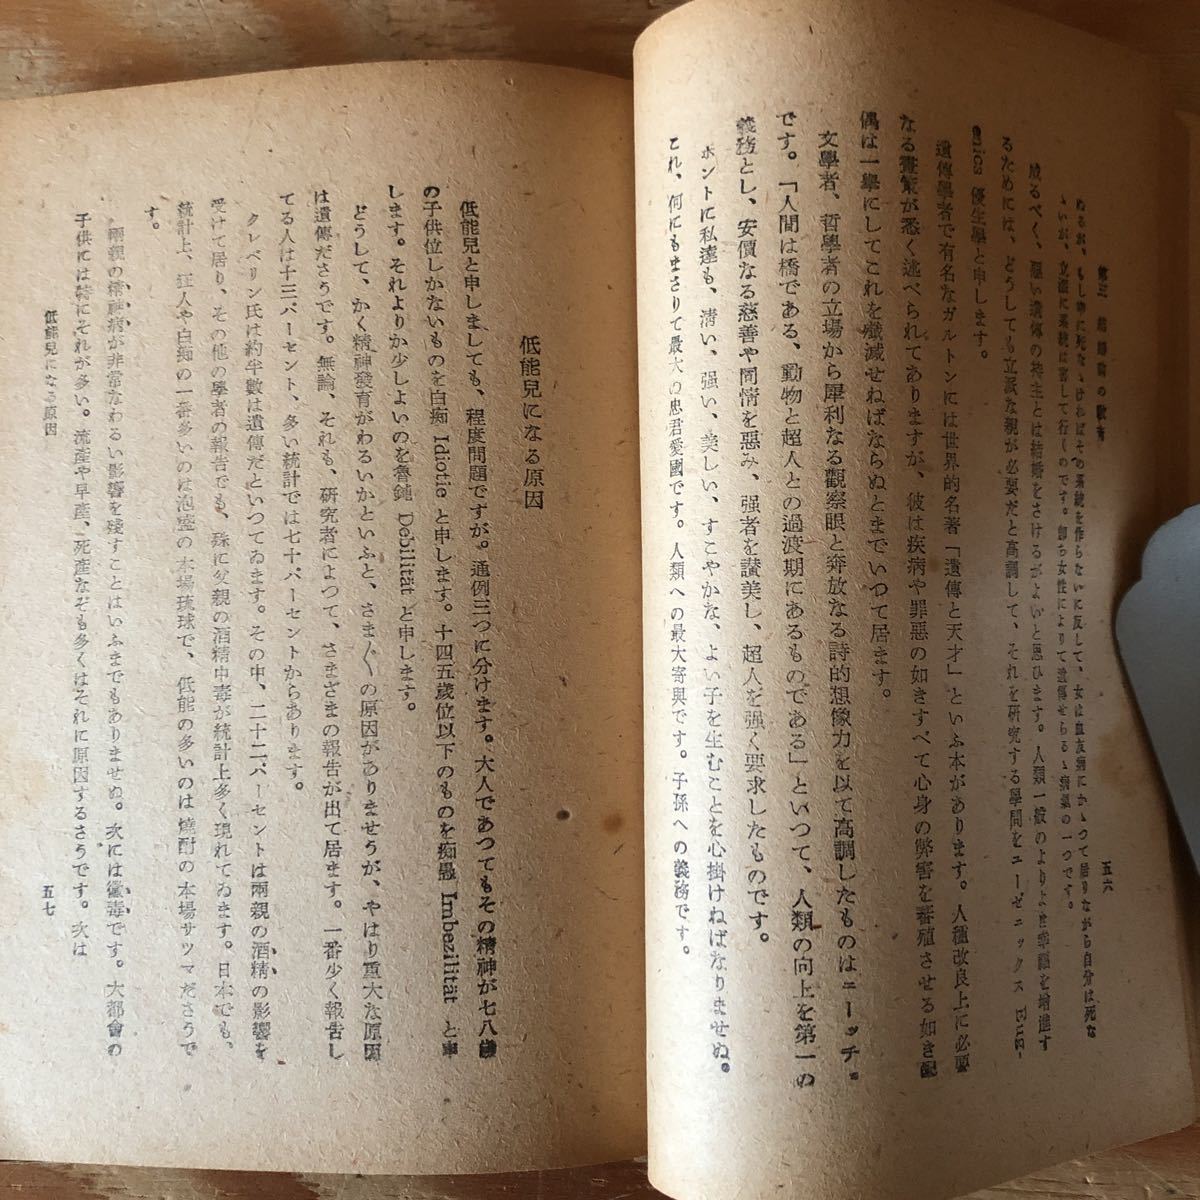 第三 結婚前の敎育
五六
ぬるが、もし幸に死ななければその系統を作らないに反して、女は血友病にかゝつて居りながら自分は死な
ゝいが、立派に系統は害して行くのです。卽ち女性によりて遺傳せらるゝ病氣の一つです。
成るべく、惡い遺傳の持主とは結婚をさけるがよいと思ひます。人類一般のよりよき幸福を增進す
るためには、どうしても立派な親が必要だと高調して、それを硏究する學問をユーゼニックス Eug-
enics 優生學と申します。
遺傳學者で有名なガルトンには世界的名著「遺傳と天才」といふ本があります。人種改良上に必要
なる畫策が悉く述べられてありますが、彼は疾病や罪惡の如きすべて心身の弊害を蕃殖させる如き配
偶は一擧にしてこれを殲滅せねばならぬとまでいつて居ます。
文學者、哲學者の立場から犀利なる觀察眼と奔放なる詩的想像力を以て高調したものはニーッチ。
です。「人間は橋である、動物と超人との過渡期にあるものである」といつて、人類の向上を第一の
義務とし、安價なる慈善や同情を惡み、强者を讃美し、超人を强く要求したものです。
ホントに私達も、淸い、强い、美しい、すこやかな、よい子を生むことを心掛けねばなりませぬ。
これ、何にもまさりて最大の忠君愛國です。人類への最大寄與です。子孫への義務です。
低能兒になる原因
低能兒と申しましても、程度問題ですが。通例三つに分けます。大人であつてもその精神が七八歲
の子供位しかないものを白痴 Idiotie と申します。十四五歲位以下のものを痴愚 Imbezilität と申
します。それよりか少しよいのを魯鈍 Debilität と申します。
どうして、かく精神發育がわるいかといふと、さま〴〵の原因がありませうが、やはり重大な原因
は遺傳ださうです。無論、それも、硏究者によつて、さまざまの報告が出て居ます。一番少く報告し
てる人は十三パーセント、多い統計では七十パーセントからあります。
クレペリン氏は約半數は遺傳だといつてゐます。その中、二十二パーセントは兩親の酒精の影響を
受けて居り、その他の學者の報告でも、殊に父親の酒精中毒が統計上多く現れてゐます。日本でも、
統計上、狂人や白痴の一番多いのは泡盛の本場琉球で、低能の多いのは燒酎の本場サツマださうで
す。
兩親の精神病が非常なわるい影響を殘すことはいふまでもありませぬ。次には黴毒です。大都會の
子供には特にそれが多い。流產や早產、死產なぞも多くはそれに原因するさうです。次は
低能兒になる原因
五七